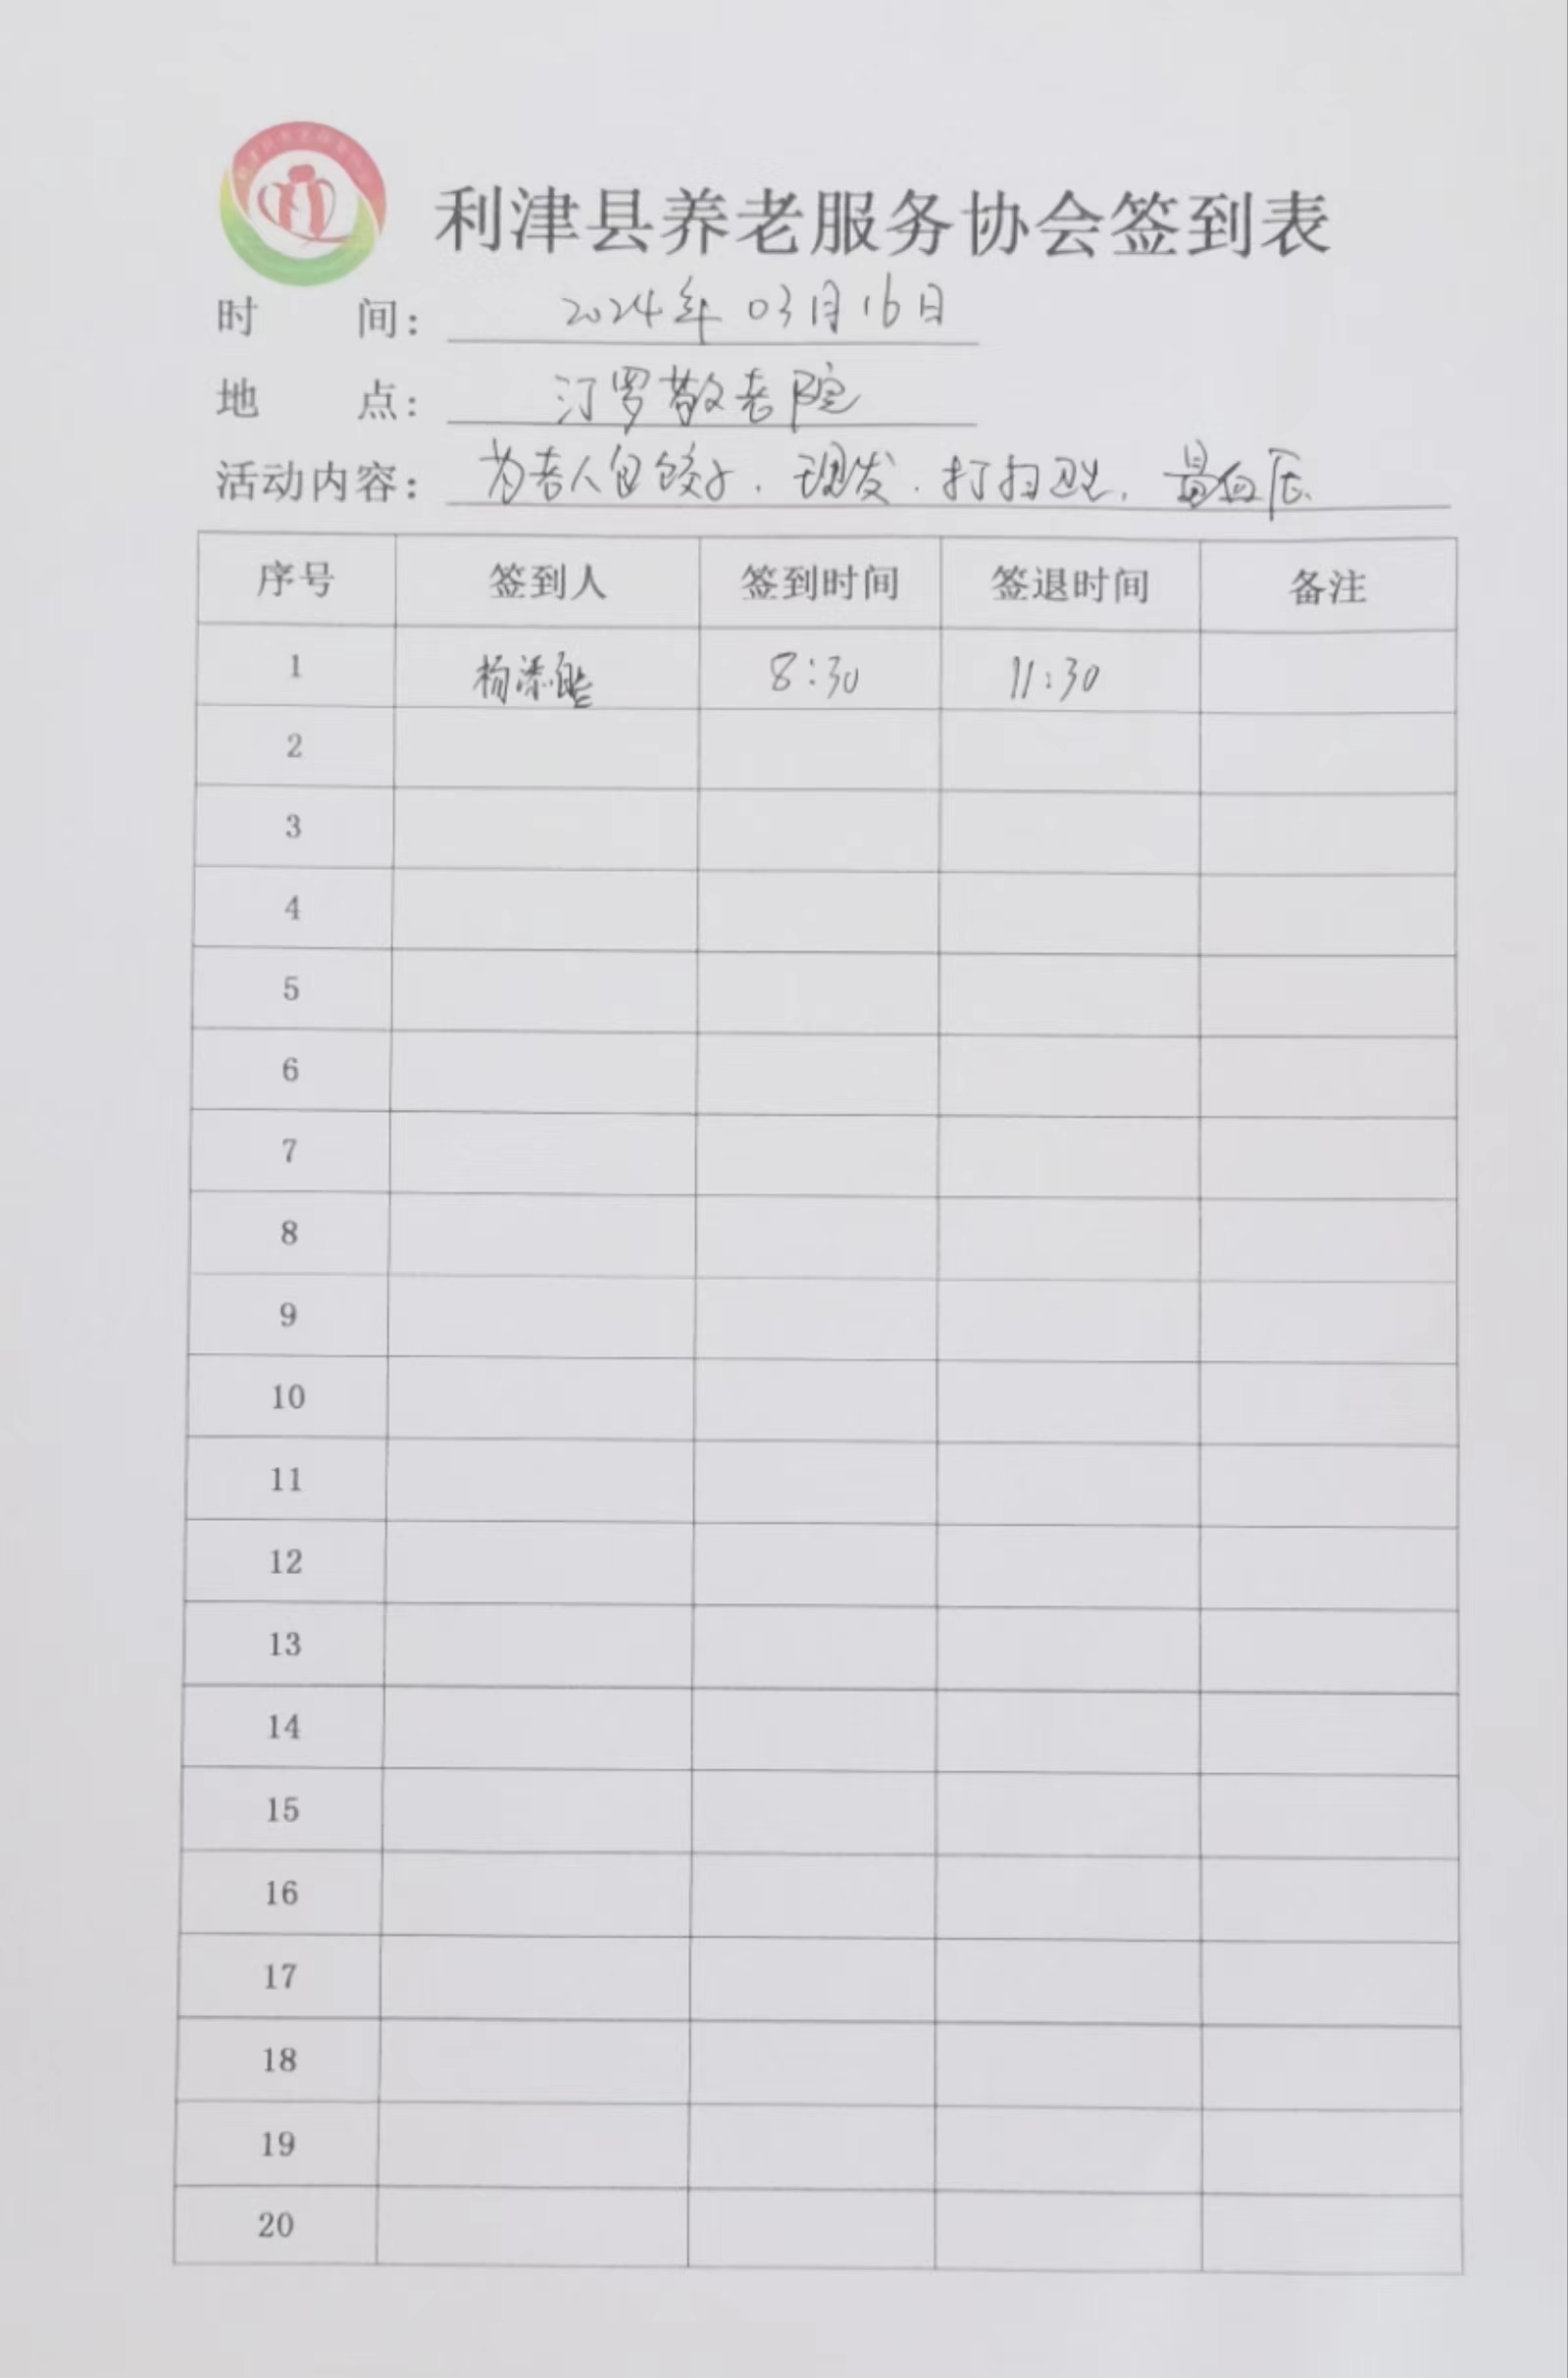 利津县养老服务协会签到表
时间：2024年03月16日
地点：汀罗敬老院
活动内容：为老人包饺子，理发，打扫卫生，量血压
序号 签到人 签到时间 签退时间 备注
1 杨添 8:30 11:30
2
3
4
5
6
7
8
9
10
11
12
13
14
15
16
17
18
19
20